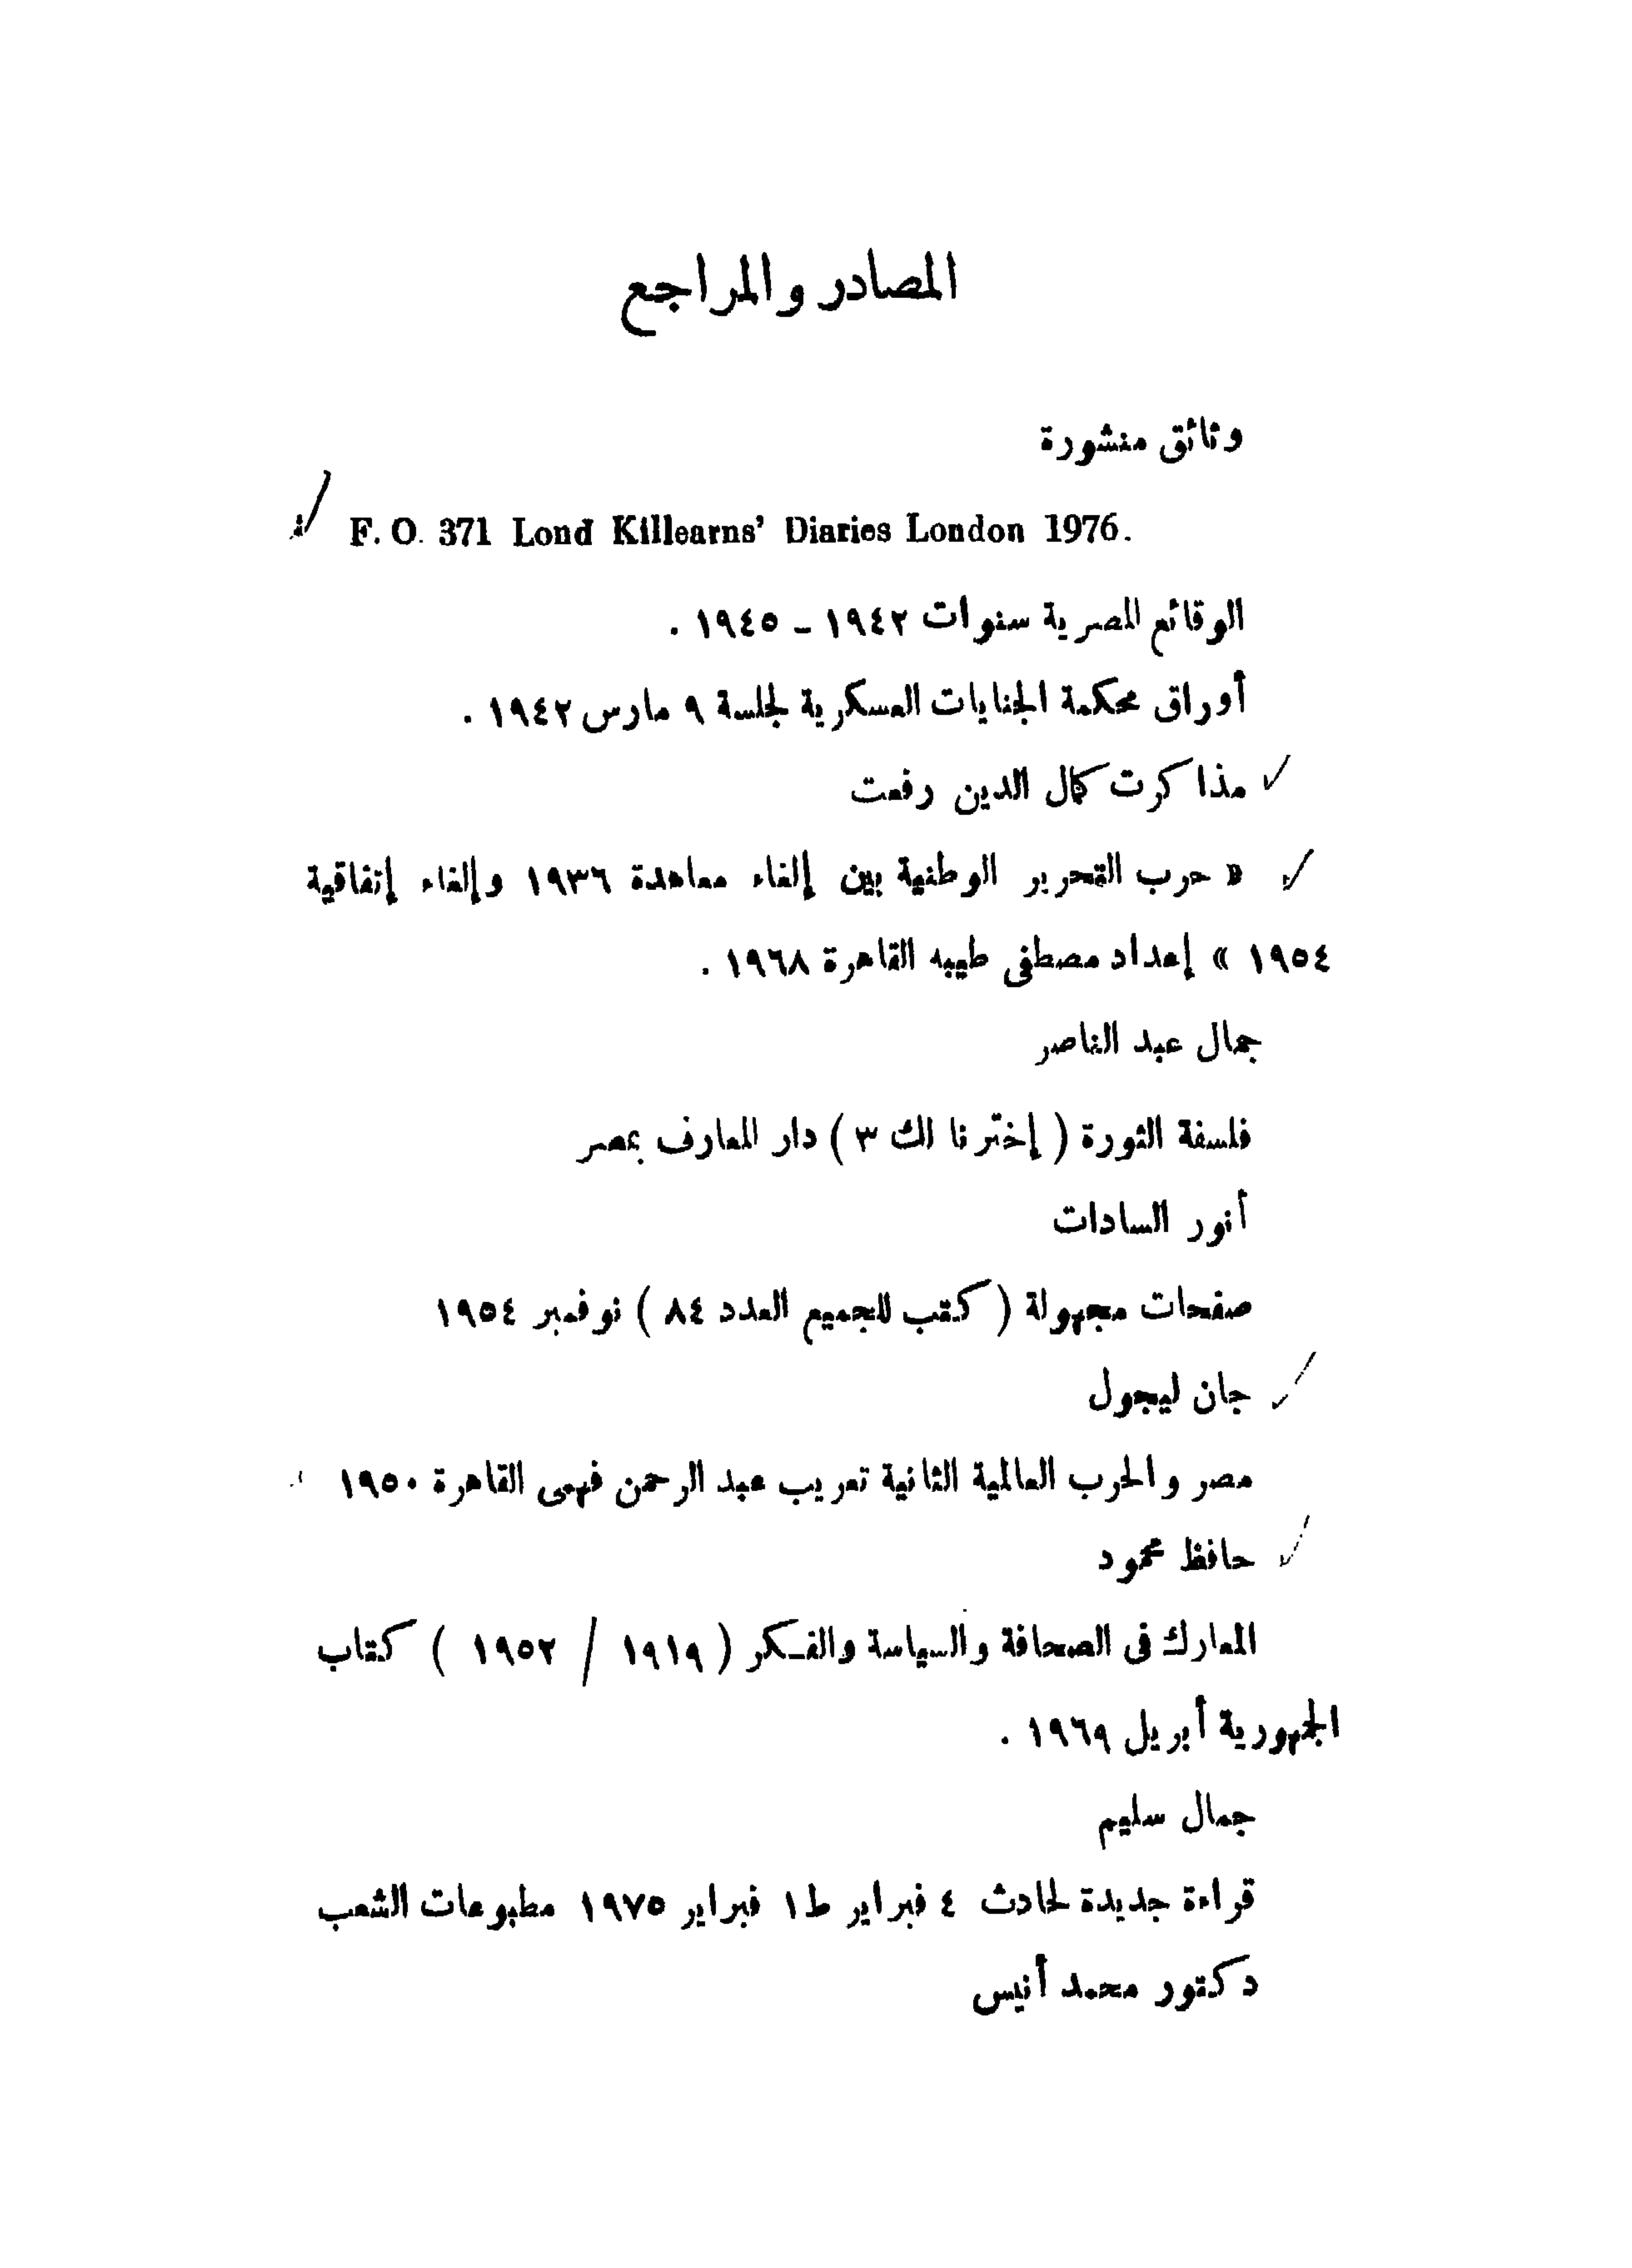 المصادر والمراجع
وثائق منشورة
F. O. 371 Lond Killearns' Diaries London 1976.
الوقائع المصرية سنوات ١٩٤٢ – ١٩٤٥ .
أوراق محكمة الجنايات العسكرية لجلسة ٩ مارس ١٩٤٢ .
مذاكرت كمال الدين رفعت
« حرب التحرير الوطنية بين إلغاء معاهدة ١٩٣٦ وإلغاء إتفاقية
١٩٥٤ » إعداد مصطفى طيبه القاهرة ١٩٦٨ .
جمال عبد الناصر
فلسفة الثورة ( إخترنا لك ٣ ) دار المعارف بمصر
أنور السادات
صفحات مجهولة ( كتب للجميع العدد ٨٤ ) نوفمبر ١٩٥٤
جان ليجول
مصر والحرب العالمية الثانية تعريب عبد الرحمن فهمى القاهرة ١٩٥٠
حافظ محمود
المعارك فى الصحافة والسياسة والفكر ( ١٩١٩ / ١٩٥٢ ) كتاب
الجمهورية أبريل ١٩٦٩ .
جمال سليم
قراءة جديدة لحادث ٤ فبراير ط١ فبراير ١٩٧٥ مطبوعات الشعب
دكتور محمد أنيس